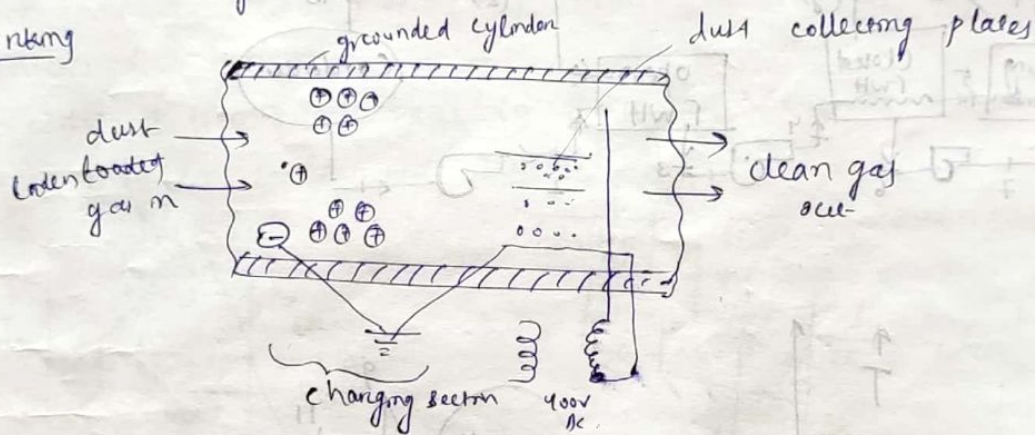 grounded cylinder
dust collecting plates
dust
loaded
gas in
clean gas
out
charging section
400V